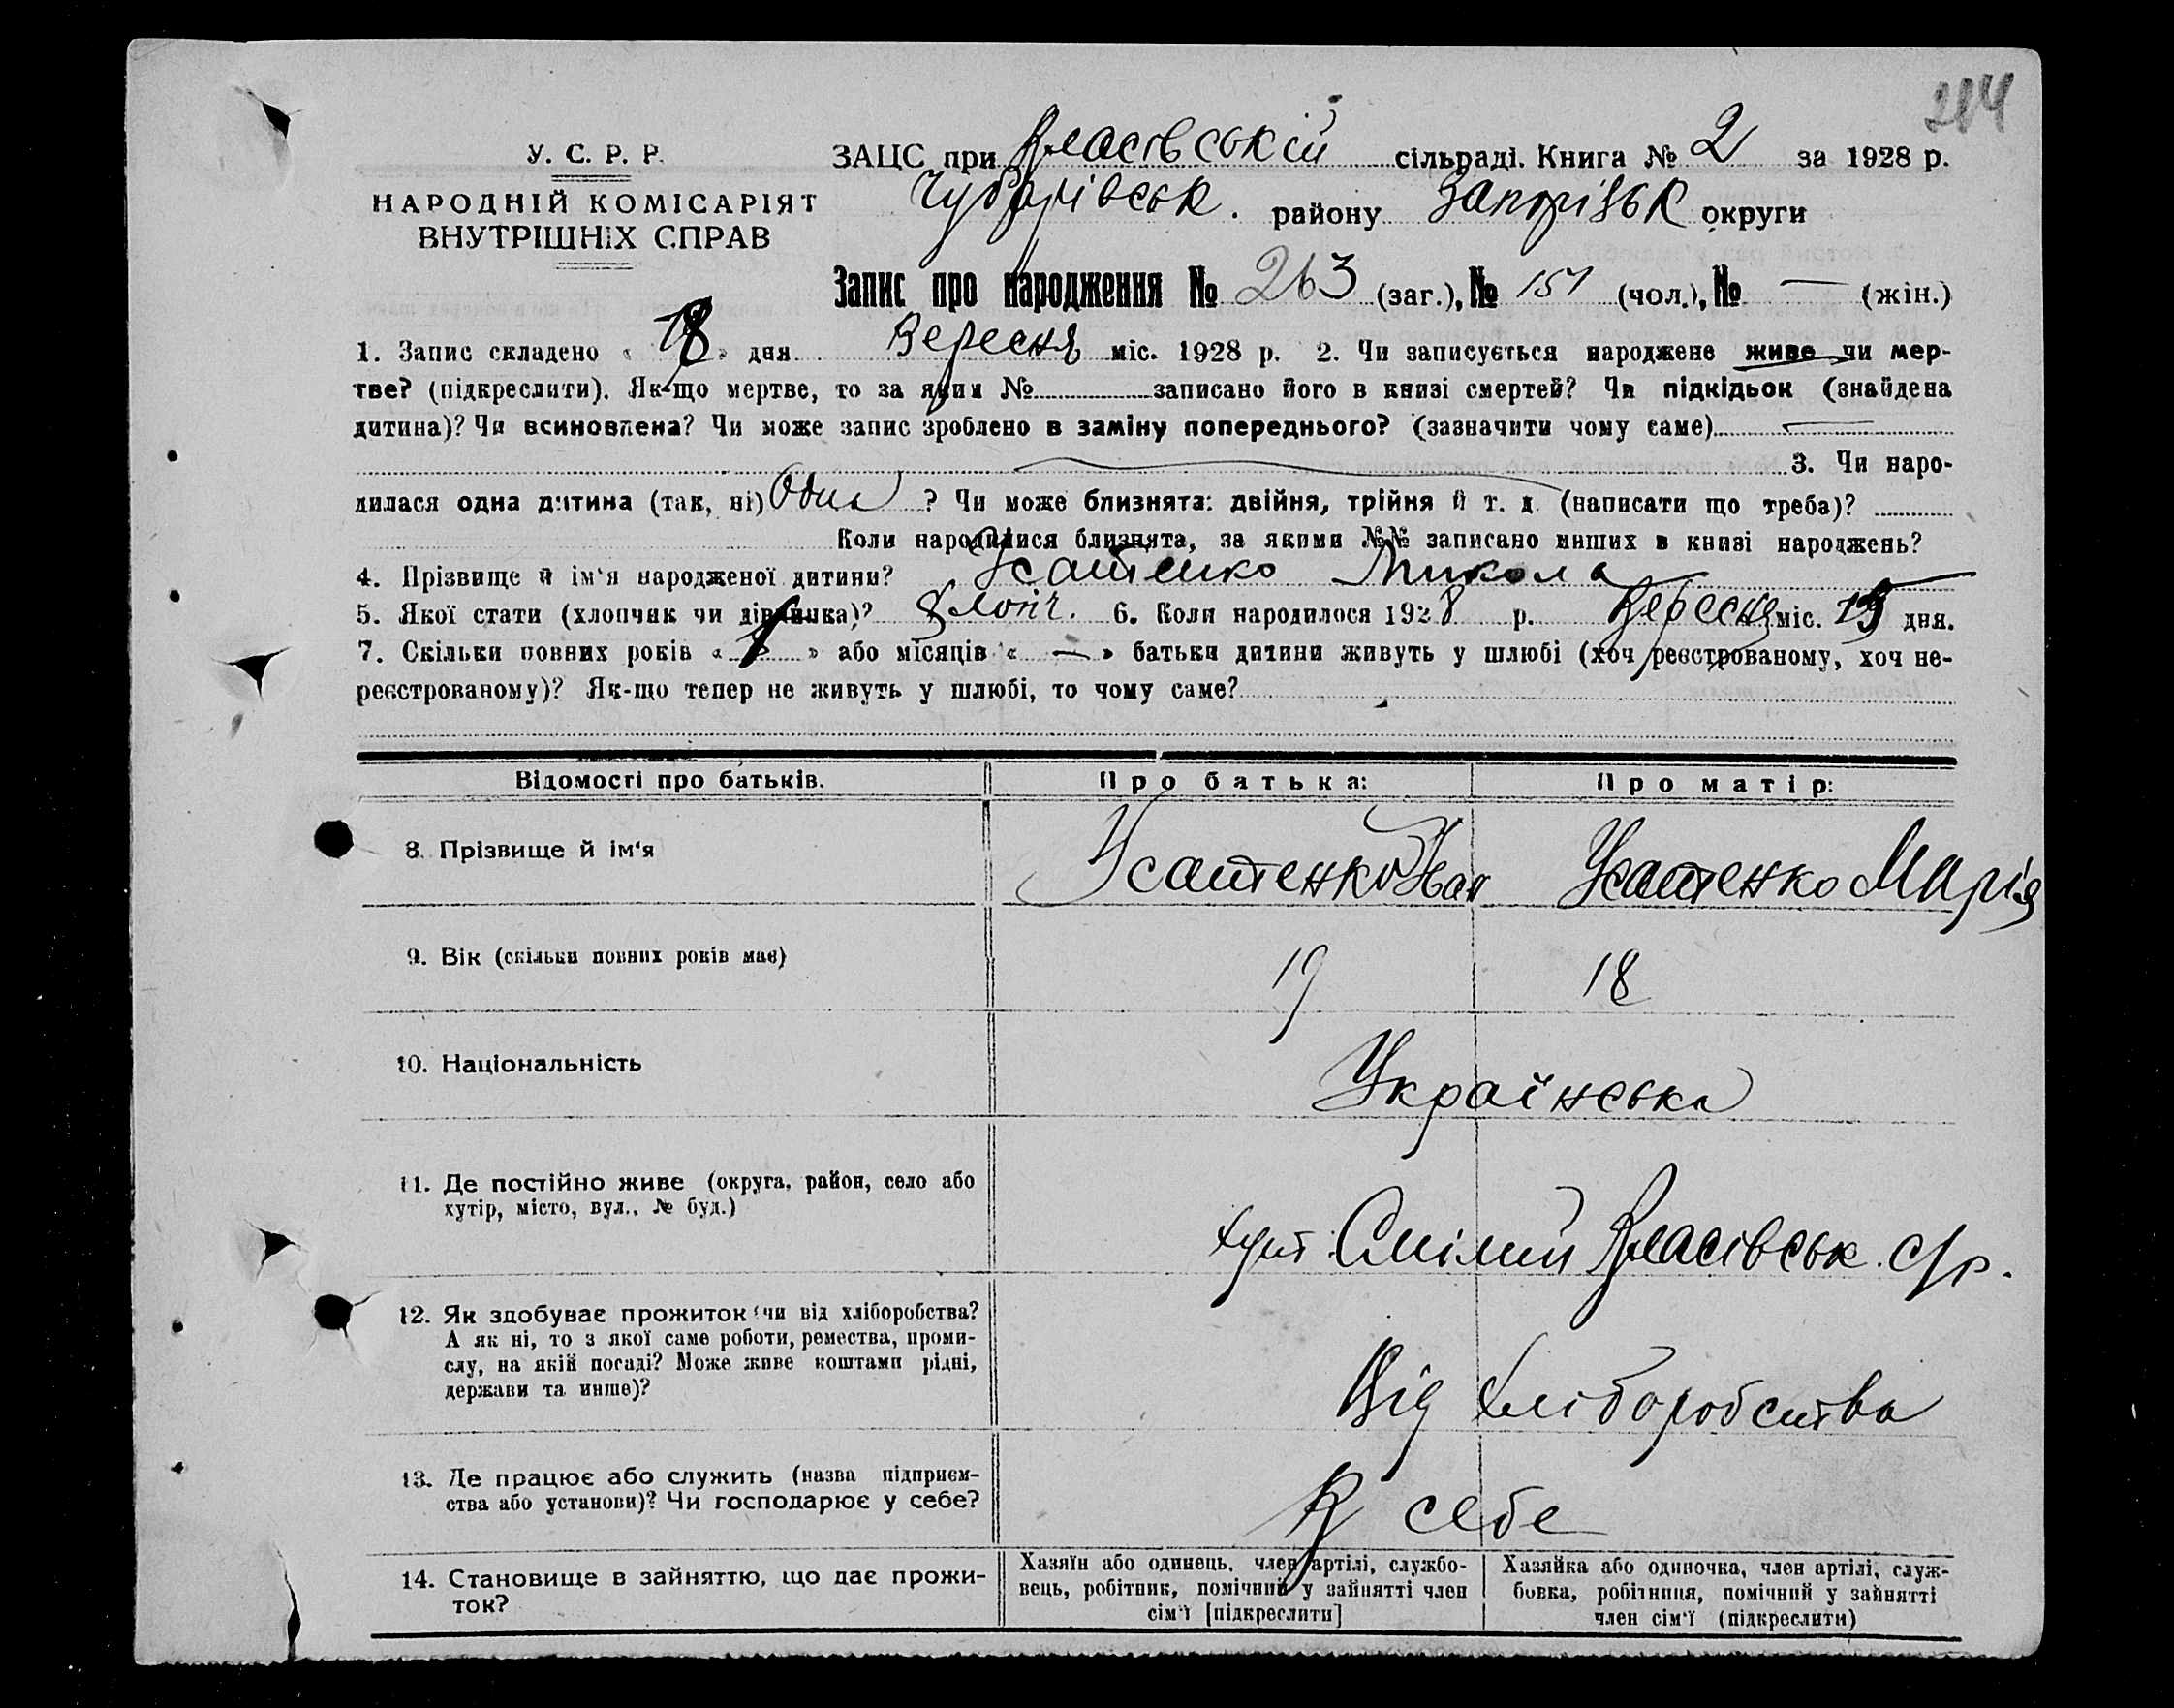 214
У. С. Р. Р.
НАРОДНІЙ КОМІСАРІЯТ
ВНУТРІШНІХ СПРАВ
ЗАЦС при Власівській сільраді. Книга № 2 за 1928 р.
Чубарівськ. району Запорізьк округи
Запис про народження № 263 (заг.), № 151 (чол.), № — (жін.)
1. Запис складено « 18 » дня Вересня міс. 1928 р. 2. Чи записується народжене живе чи мер-
тве? (підкреслити). Як-що мертве, то за яким № записано його в книзі смертей? Чи підкідьок (знайдена
дитина)? Чи всиновлена? Чи може запис зроблено в заміну попереднього? (зазначити чому саме) —
3. Чи наро-
дилася одна дитина (так, ні) Одна ? Чи може близнята: двійня, трійня й т. д. (написати що треба)?
Коли народилися близнята, за якими №№ записано инших в книзі народжень?
4. Прізвище й ім'я народженої дитини? Усатенко Микола
5. Якої стати (хлопчик чи дівчинка)? Хлопч. 6. Коли народилося 1928 р. Вересня міс. дня.
7. Скільки повних років « 1 » або місяців « — » батьки дитини живуть у шлюбі (хоч реєстрованому, хоч не-
реєстрованому)? Як-що тепер не живуть у шлюбі, то чому саме?
Відомості про батьків. Про батька: Про матір:
8. Прізвище й ім'я Усатенко Іван Усатенко Марія
9. Вік (скільки повних років має) 19 18
10. Національність Українська
11. Де постійно живе (округа, район, село або
хутір, місто, вул., № буд.)
хут. Смілий Власівськ. с/р.
12. Як здобуває прожиток (чи від хліборобства?
А як ні, то з якої саме роботи, ремества, проми-
слу, на якій посаді? Може живе коштами рідні,
держави та инше)?
Від хліборобства
13. Де працює або служить (назва підприєм-
ства або установи)? Чи господарює у себе?
В себе
14. Становище в зайняттю, що дає прожи-
ток?
Хазяїн або одинець, член артілі, службо-
вець, робітник, помічний у зайнятті член
сім'ї [підкреслити]
Хазяйка або одиночка, член артілі, служ-
бовка, робітниця, помічний у зайнятті
член сім'ї (підкреслити)